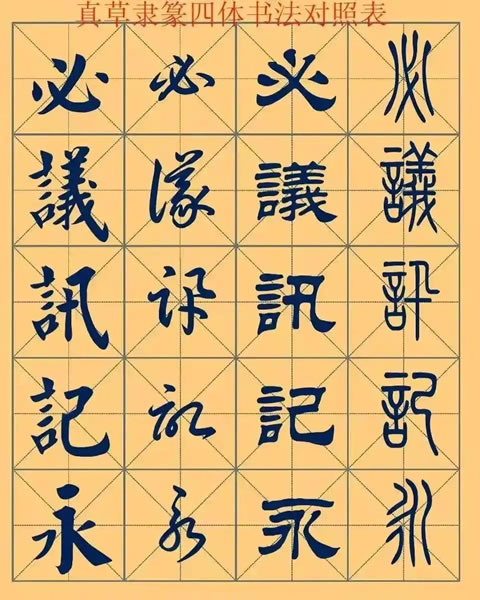 真草隶篆四体书法对照表
必 必 必 必
議 議 議 議
訊 訊 訊 訊
記 記 記 記
永 永 永 永